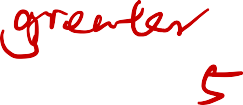 greater
5